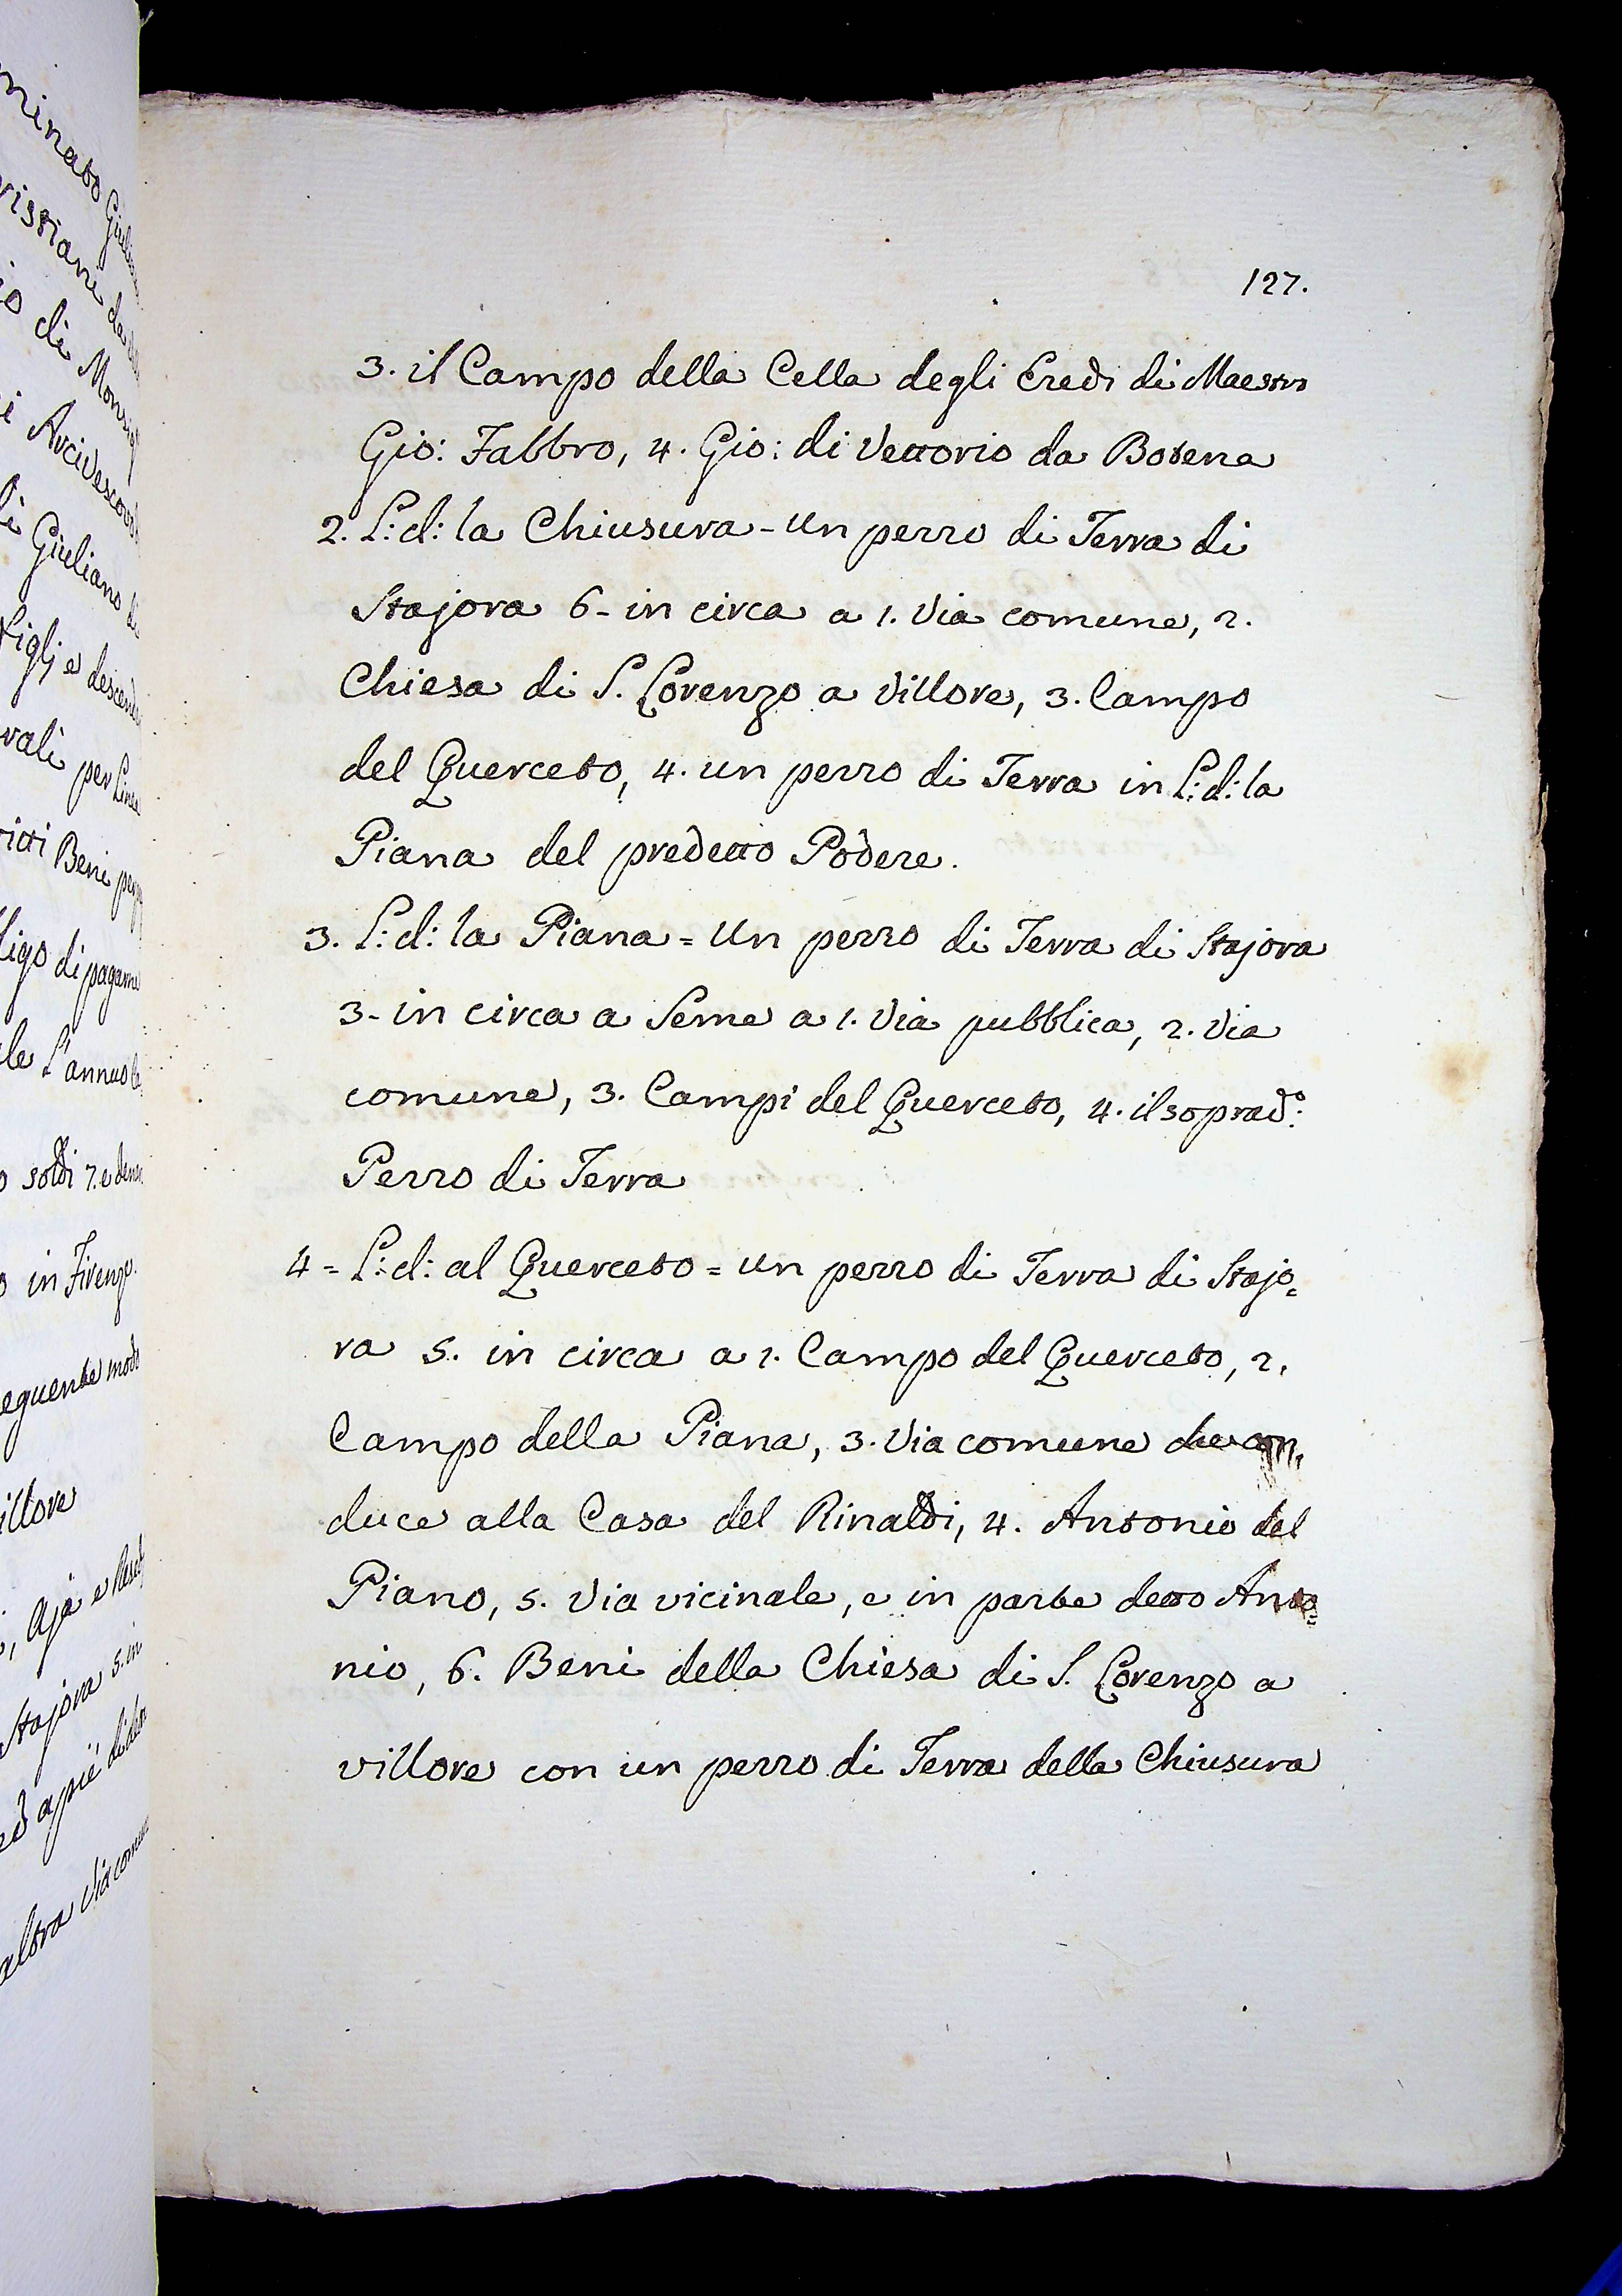 minato Giulia
rissiani da
io di Monsig
i Arcivescov
di Giuliano d
figlj e descend
rali per Linea
ritti Beni per
ligo di pagarne
le L'annuo
o soldi 7. e den
o in Firenze
eguente modo
illore
, Aja e Resed
Stajora 5. in
ed a piè di det
altra Via comun
127.
3. il Campo della Cella degli Eredi di Maestro
Gio: Fabbro, 4. Gio: di Vettorio da Botena
2. L: d: la Chiusura - Un pezzo di Terra di
Stajora 6 - in circa a 1. Via comune, 2.
Chiesa di S. Lorenzo a Villore, 3. Campo
del Querceto, 4. un pezzo di Terra in L: d: la
Piana del predetto Podere.
3. L: d: la Piana = Un pezzo di Terra di Stajora
3 - in circa a Seme a 1. Via pubblica, 2. Via
comune, 3. Campi del Querceto, 4. il soprad:º
Pezzo di Terra
4 = L: d: al Querceto = Un pezzo di Terra di Stajo=
ra 5. in circa a 1. Campo del Querceto, 2.
Campo della Piana, 3. Via comune che con=
duce alla Casa del Rinaldi, 4. Antonio del
Piano, 5. Via vicinale, e in parte detto Anto=
nio, 6. Beni della Chiesa di S. Lorenzo a
villore con un pezzo di Terra della Chiusura